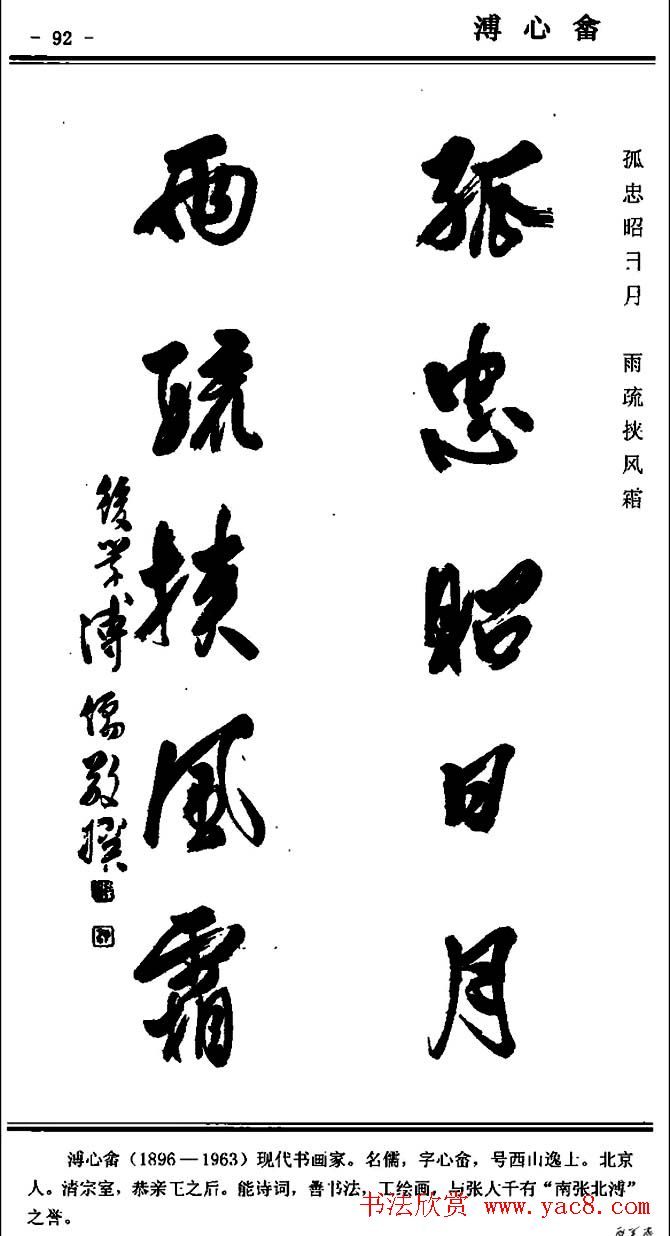 - 92 -
溥心畬
孤忠昭日月 雨疏挟风霜
孤忠昭日月
兩疏挾風霜
後学溥儒敬撰
溥心畬(1896—1963)现代书画家。名儒,字心畬,号西山逸士。北京
人。清宗室,恭亲王之后。能诗词,善书法,工绘画。与张大千有“南张北溥”
之誉。
书法欣赏 www.yac8.com